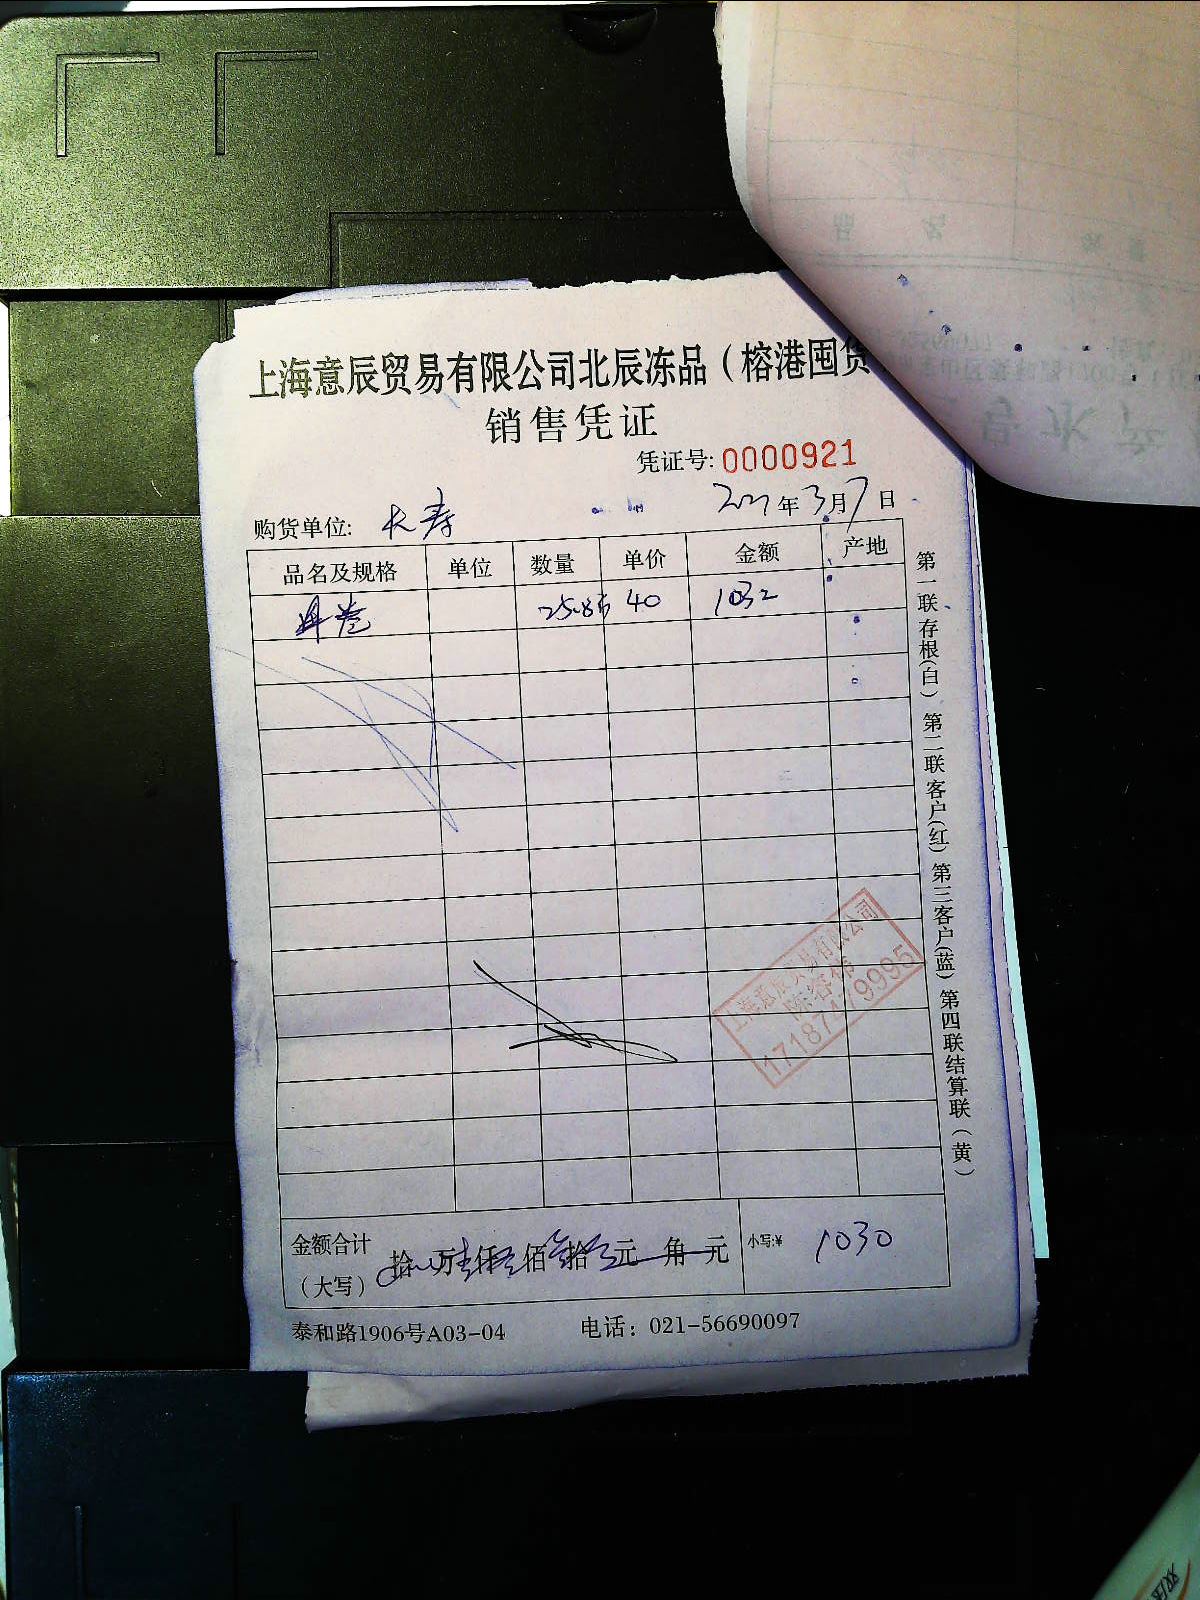 上海意辰贸易有限公司北辰冻品（榕港囤货
销售凭证
凭证号: 0000921
年3月7日
购货单位: 长寿
品名及规格 单位 数量 单价 金额 产地
卷 25.8 40 1032
第一联存根(白) 第二联客户(红) 第三客户(蓝) 第四联结算联(黄)
上海意辰贸易有限公司
陈容伟
17187179995
金额合计（大写） 拾 万 仟 佰 拾 元 角 元 小写:¥ 1030
泰和路1906号A03-04 电话：021-56690097